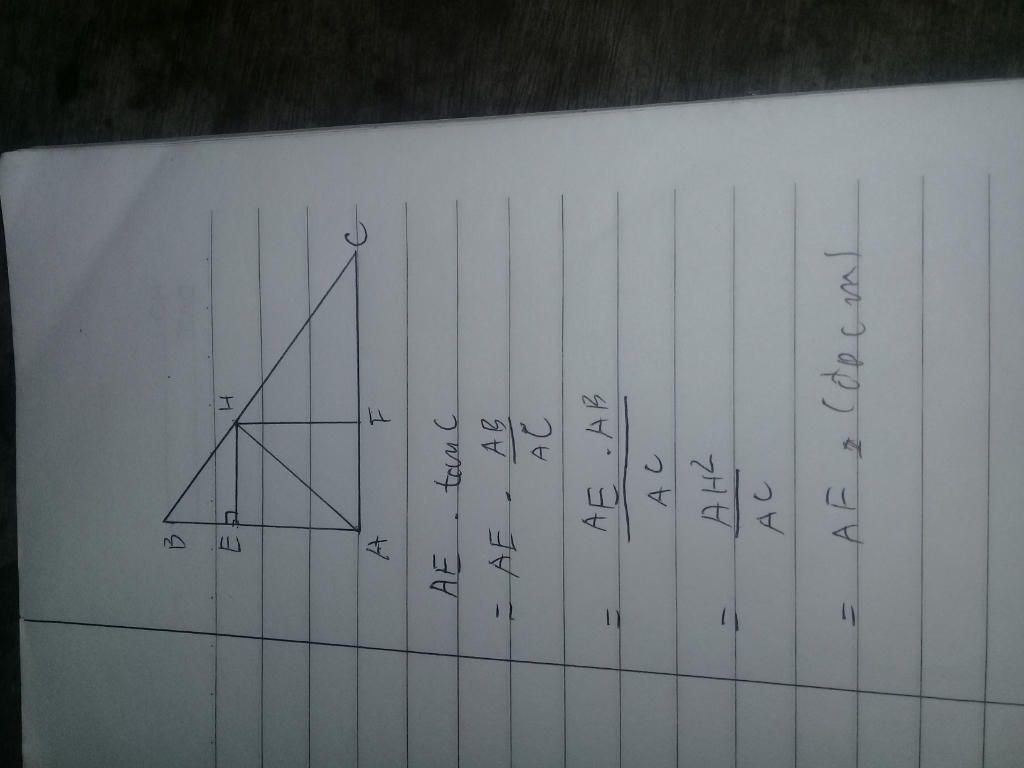 B
E H
A F C
AE . tan C
= AE . AB/AC
= AE . AB/AC
= AH2/AC
= AF (đpcm)